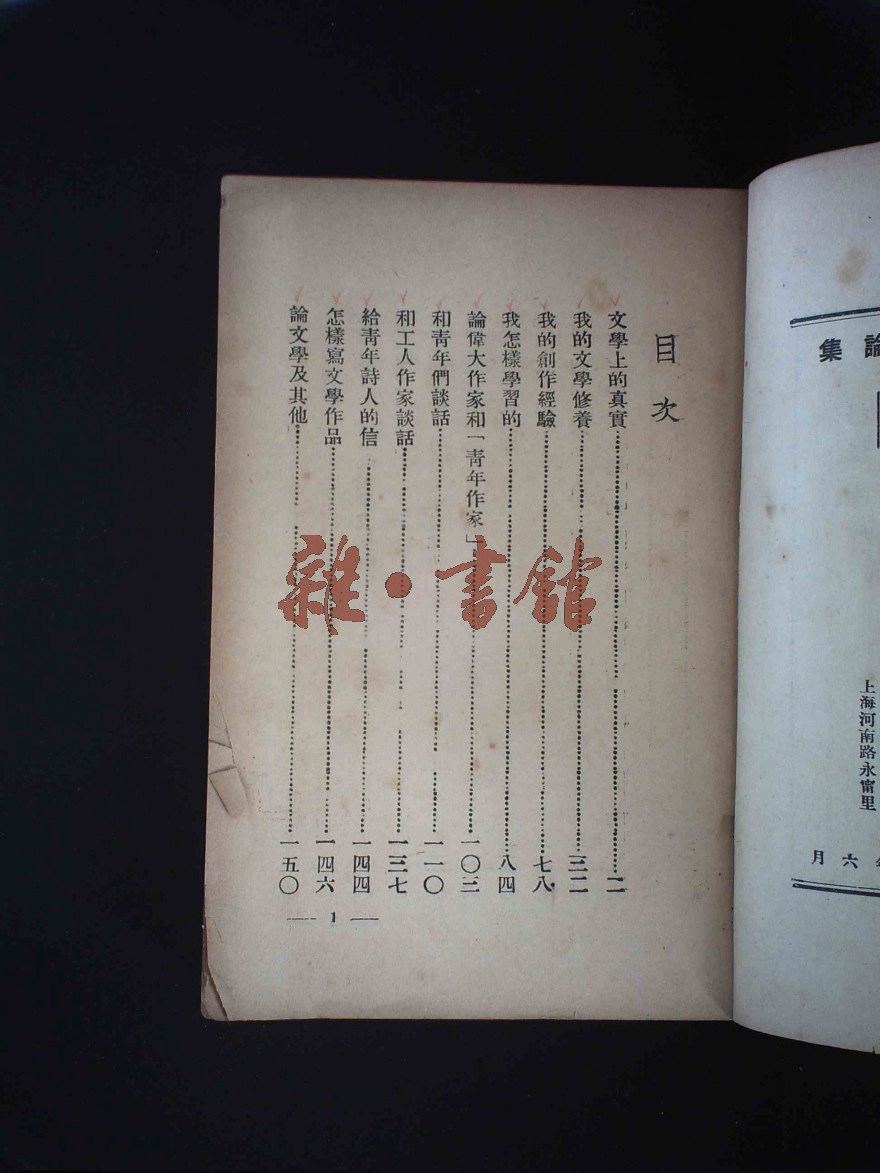 論集
上海河南路永甯里
六月
目次
文學上的真實……二
我的文學修養……三二
我的創作經驗……七八
我怎樣學習的……八四
論偉大作家和「青年作家」……一〇三
和青年們談話……一一〇
和工人作家談話……一三七
給青年詩人的信……一四四
怎樣寫文學作品……一四六
論文學及其他……一五〇
— 1 —
雜·書館